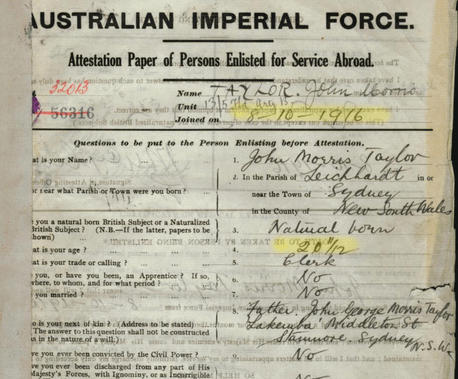 AUSTRALIAN IMPERIAL FORCE.
Attestation Paper of Persons Enlisted for Service Abroad.
52013
56316
Name TAYLOR, John Morris
Unit
Joined on 8-10-1916
Questions to be put to the Person Enlisting before Attestation.
at is your Name? ... 1. John Morris Taylor
2. In the Parish of Leichhardt in or
r near what Parish or Town were you born? near the Town of Sydney
in the County of New South Wales
e you a natural born British Subject or a Naturalized
British Subject? (N.B.—If the latter, papers to be 3. Natural born
hown)
at is your age? ... 4. 20 11/12
at is your trade or calling? 5. Clerk
e you, or have you been, an Apprentice? If so,
where, to whom, and for what period? 6. No
you married? 7. No
8. Father John George Morris Taylor
o is your next of kin? (Address to be stated) Lakemba Middleton St
The answer to this question shall not be constructed Stanmore, Sydney
as in the nature of a will) N.S.W.
ve you ever been convicted by the Civil Power? 9. No
ve you ever been discharged from any part of His
ajesty's Forces, with Ignominy, or as Incorrigible